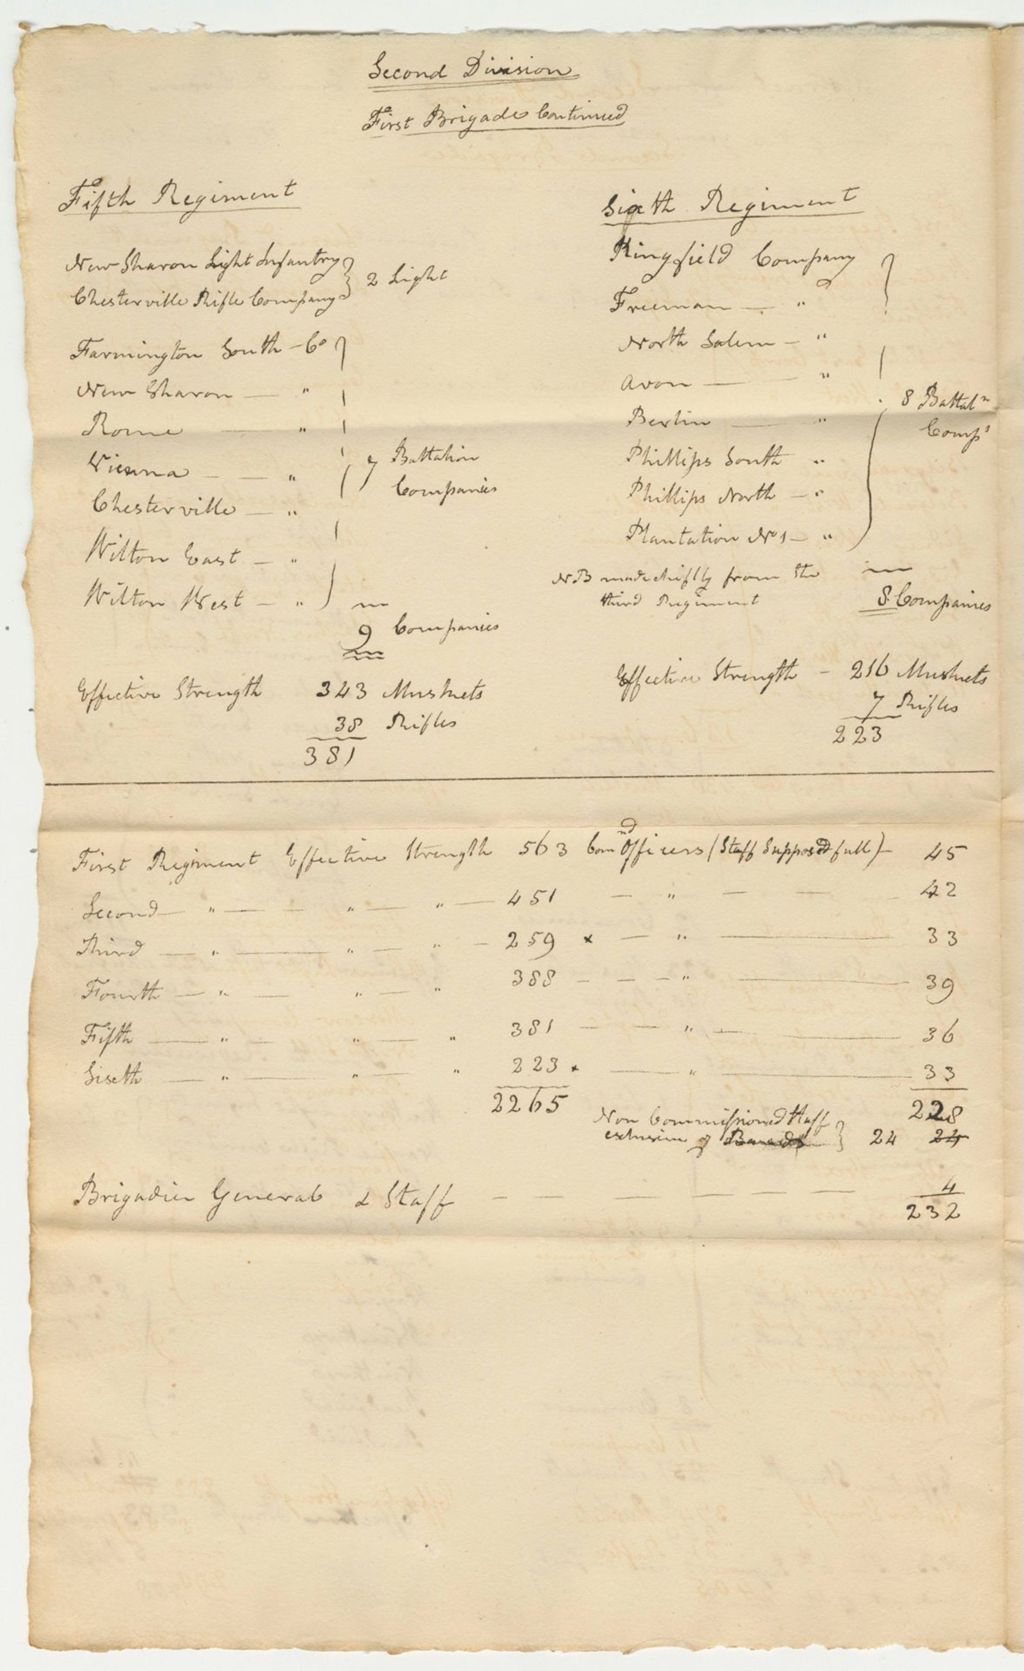 Second Division
First Brigade Continued
Fifth Regiment
New Sharon Light Infantry } 2 Light
Chesterville Rifle Company
Farmington South - Co
New Sharon — "
Rome "
Vienna — — "
7 Battalion
Companies
Chesterville — "
Wilton East — "
Wilton West — "
9 Companies
Effective Strength 343 Muskets
38 Rifles
381
Sixth Regiment
Kingfield Company
Freeman — "
North Salem — "
Avon — "
8 Battaln
Comps
Berlin — "
Phillips South "
Phillips North — "
Plantation No 1 — "
NB made chiefly from the
third Regiment
8 Companies
Effective Strength - 216 Muskets
7 Rifles
223
First Regiment Effective Strength 563 Comnd Officers (Staff Supposed full) - 45
Second — " — " — " — 451 — " — — 42
Third — " — " — " — 259 x — " — 33
Fourth — " — " — " 388 - — - " — 39
Fifth — " — " — " 381 — " — 36
Sixth — " — " — " 223 x — " — 33
2265 228
Non Commissioned Staff
exclusive of Bands } 24 24
Brigadier General & Staff — — — — — 4
232